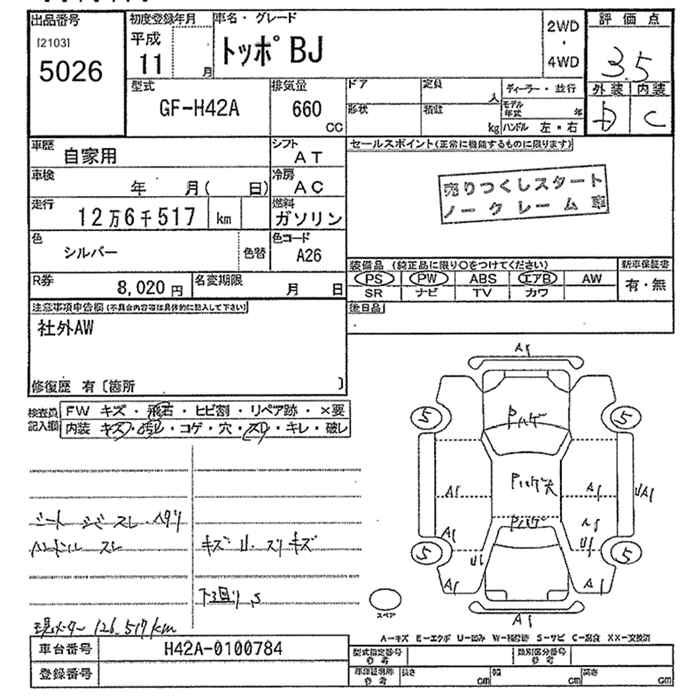 出品番号 初度登録年月 車名・グレード 2WD ・ 4WD 評価点
[2103] 5026 平成 11 月 トッポBJ 3.5
外装 内装
D C
型式 排気量 ドア 定員 人 ディーラー・並行
GF-H42A 660 cc 形状 積載 kg モデル年式 年
ハンドル 左・右
車歴 自家用 シフト AT セールスポイント(正常に機能するものに限ります)
車検 年 月( 日) 冷房 AC
売りつくしスタート
ノークレーム
走行 12万6千517 km 燃料 ガソリン
色 シルバー 色替 色コード A26
装備品 (純正品に限り○をつけてください) 新車保証書
PS PW ABS エアB AW 有・無
SR ナビ TV カワ
R券 8,020円 名変期限 月 日
後日品
注意事項申告欄(不具合内容等は具体的に記入して下さい)
社外AW
修復歴 有 〔箇所 〕
検査員記入欄 FW キズ・飛石・ヒビ割・リペア跡・×要
内装 キズ・汚れ・コゲ・穴・スレ・キレ・破レ
A1
5 Pハゲ 5
A1 Pハゲ大 A1 UA1
A1 Pハゲ A1
U1 U1
5 5
A1 A1
A1
シート シミ スレ ヘタリ
ハンドル スレ キズ U.スリキズ
下回り S
現メーター 126,517km
スペア
A-キズ E-エクボ U-凹み W-補修跡 S-サビ C-腐食 XX-交換済
車台番号 H42A-0100784
型式指定番号 参考 類別区分番号 参考
登録番号
長さ cm 幅 cm 高さ cm